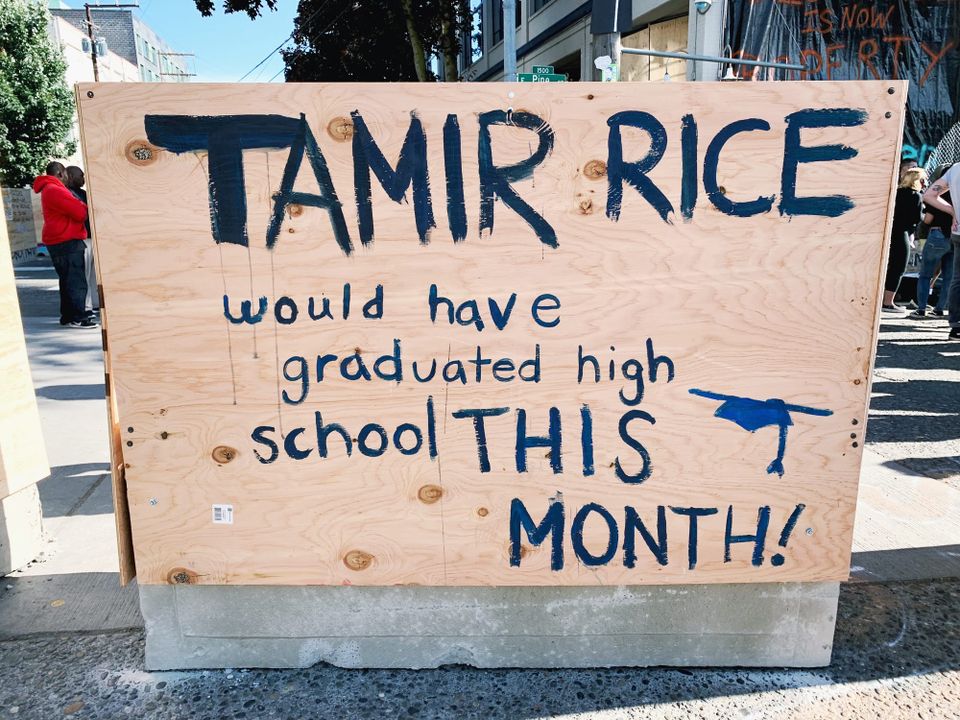 IS NOW
PROPERTY
1500
E Pine
TAMIR RICE
would have
graduated high
school THIS
MONTH!